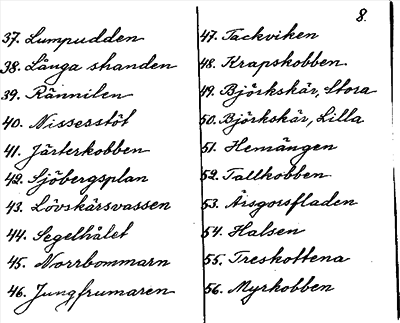 8.
37. Lumpudden
38. Långa stranden
39. Rännilen
40. Nissesstöt
41. Järterkobben
42. Sjöbergsplan
43. Lövskärsvassen
44. Segelhålet
45. Norrbommarn
46. Jungfrumaren
47. Tackviken
48. Krapskobben
49. Björkskär, Stora
50. Björkskär, Lilla
51. Hemängen
52. Tallkobben
53. Årsgorsfladen
54. Halsen
55. Treskottena
56. Myrkobben